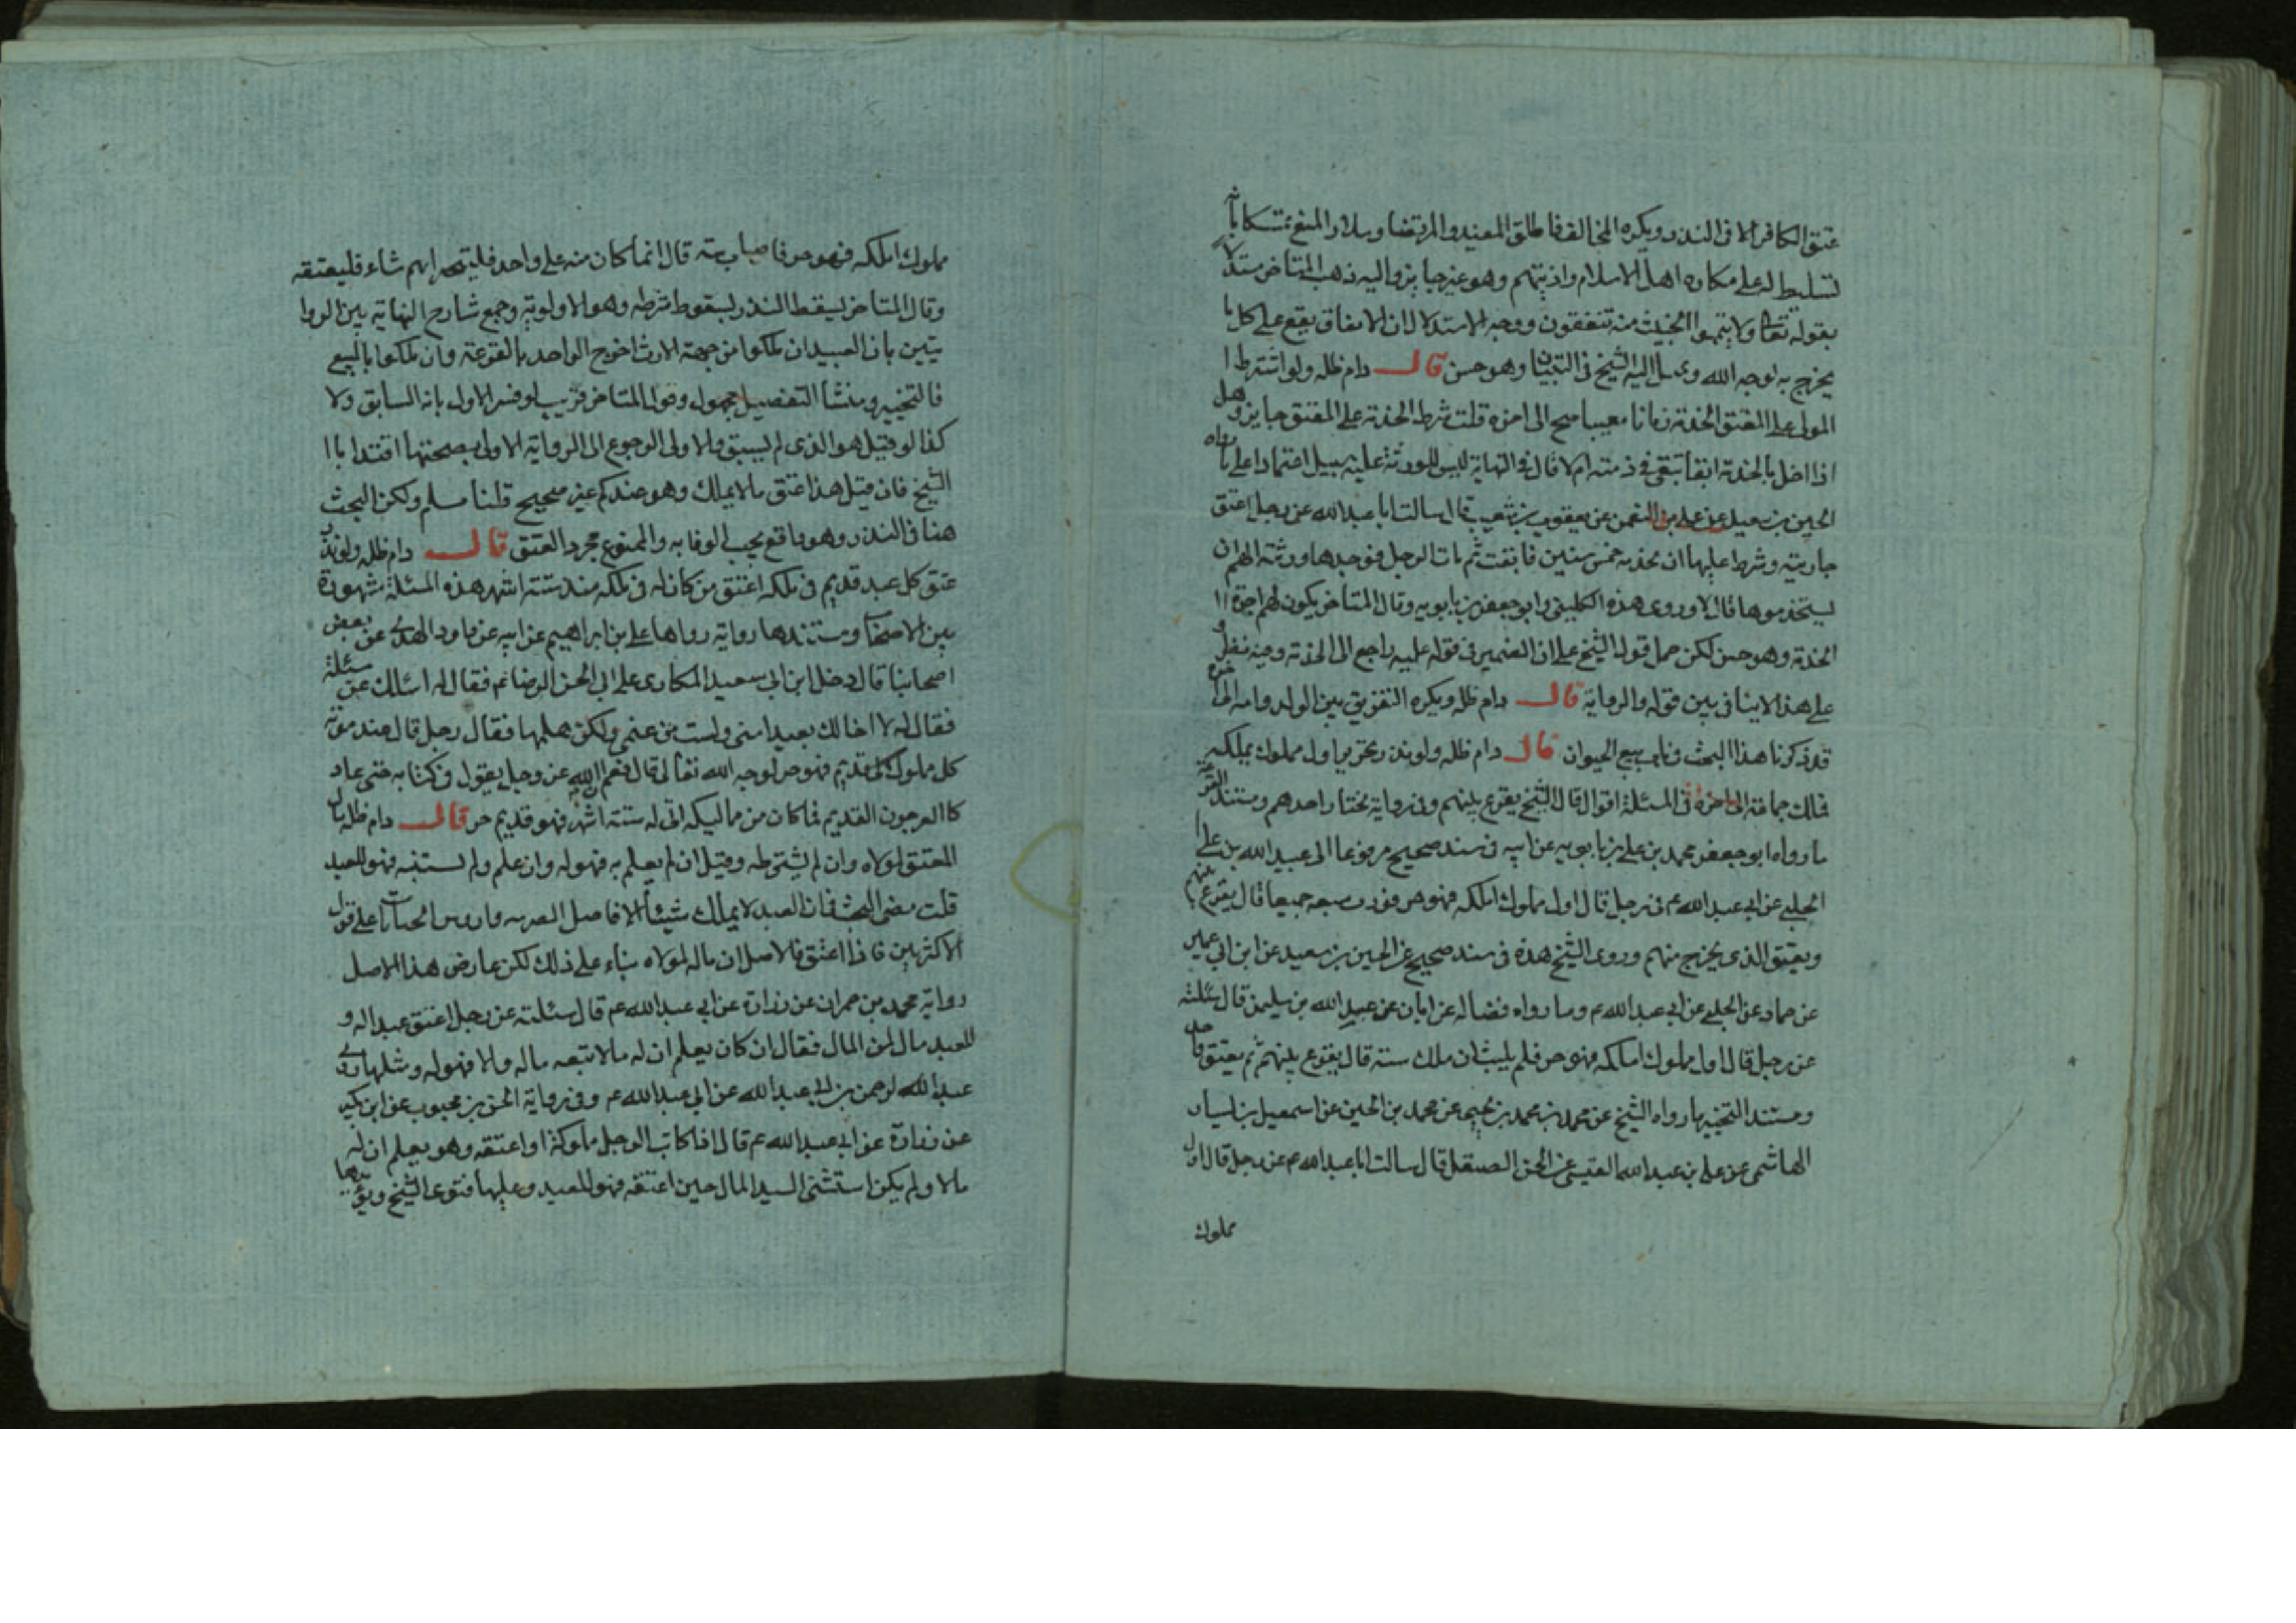 عتق الكافر الا فى النذر ويكره المخالف فاطلق المفيد والمرتضا وسلار المنع تمسكا بانه
تسليط له على مكاره اهل الاسلام واذيتهم وهو غير جايز واليه ذهب المتاخر مستدلا
بقوله تعالى ولا تيمموا الخبيث منه تنفقون ووجه الاستدلال ان الانفاق يقع على كل ما
يخرج به لوجه الله اليه الشيخ فى التبيان وهو حسن قال دام ظله ولو اشترط ا
المولى على المعتق الخدمة زمانا معينا صح الى اخره قلت شرط الخدمة على المعتق جايز وهل
اذا اخل بالخدمة ابقا تبقى فى ذمته ام لا قال فى النهاية ليس للورثة عليه سبيل اعتمادا على ما رواه
الحسين بن سعيد عن على بن النعمن عن يعقوب بن شعيب قال سالت ابا عبد الله عن رجل اعتق
جاريته وشرط عليها ان تخدمه خمس سنين فابقت ثم مات الرجل فوجدها ورثته الهم ان
يستخدموها قال لا وروى هذه الكلينى وابو جعفر بن بابويه وقال المتاخر يكون لهم اجرة ا
الخدمة وهو حسن لكن حمل قول الشيخ على ان الضمير فى قوله عليه راجع الى الخدمة وفيه نظر و
على هذا لا ينافى بين قوله والرواية قال دام ظله ويكره التفريق بين الولد وامه الى اخره
قد ذكرنا هذا البحث فى باب بيع الحيوان قال دام ظله ولو نذر تحرير اول مملوك يملكه
فملك جماعة الى اخره فى المسئلة اقوال قال الشيخ يقرع بينهم وفى رواية يختار احدهم ومستند القرعة
ما رواه ابو جعفر محمد بن على بن بابويه عن ابيه فى سند صحيح مرفوعا الى عبيد الله بن على
الحلبى عن ابى عبد الله ع فى رجل قال اول مملوك املكه فهو حر فورث سبعه جميعا قال يقرع بينهم
ويعتق الذى يخرج منهم وروى الشيخ هذه فى سند صحيح عن الحسين بن سعيد عن ابن ابى عمير
عن حماد عن الحلبى عن ابى عبد الله ع وما رواه فضاله عن ابان عن عبد الله بن سليمن قال سئلته
عن رجل قال اول مملوك املكه فهو حر فلم يلبث ان ملك ستة قال يقرع بينهم ثم يعتق واحدا
ومستند التخيير ما رواه الشيخ عن محمد بن محمد بن يحيى عن محمد بن الحسين عن اسمعيل بن يسار
الهاشمى عن على بن عبد الله عن الحسن الصيقل قال سالت ابا عبد الله ع عن رجل قال اول
مملوك
مملوك املكه فهو حر فاصاب ستة قال انما كان منه على واحد فليتخير ايهم شاء فليعتقه
وقال المتاخر يسقط النذر لسقوط شرطه وهو الاولوية وجمع شارح النهاية بين الروا
يتين بان العبيد ان ملكوا من جهة الارث اخرج الواحد بالقرعة وان ملكوا بالبيع
فالتخيير ومنشأ التفصيل مجهول وقول المتاخر قريب لو فسر الاول بانه السابق ولا
كذا لو قيل هو الذى لم يسبق والاولى الرجوع الى الرواية الاولى بصحتها اقتدا با ا
الشيخ فان قيل هذا عتق ما لا يملك وهو عندكم غير صحيح قلنا مسلم ولكن البحث
هنا فى النذر وهو واقع يجب الوفا به والممنوع مجرد العتق قال دام ظله ولو نذر
عتق كل عبد قديم فى ملكه اعتق من كان له فى ملكه منذ ستة اشهر هذه المسئلة مشهورة
بين الاصحاب ومستندها رواية رواها على بن ابراهيم عن ابيه عن داود النهدى عن بعض
اصحابنا قال دخل ابن ابى سعيد المكارى على ابى الحسن الرضا ع فقال له اسئلك عن مسئلة
فقال له لا اخالك بعيدا منى ولست من غنمى ولكن هلمها فقال رجل قال عند موته
كل مملوك لى قديم فهو حر لوجه الله تعالى قال نعم ان الله عز وجل يقول فى كتابه حتى عاد
كالعرجون القديم فما كان من مماليكه اتى له ستة اشهر فهو قديم حر قال دام ظله مال
المعتق لمولاه وان لم يشترطه وقيل ان لم يعلم به فهو له وان علم ولم يستثنه فهو للعبد
قلت مضى البحث فان العبد لا يملك شيئا الا فاضل الضريبه واروش الجنايات على قول
الاكثرين فاذا اعتق فالاصل ان ماله لمولاه بناء على ذلك لكن عارض هذا الاصل
رواية محمد بن حمران عن زرارة عن ابى عبد الله ع قال سئلته عن رجل اعتق عبدا له و
للعبد مال لمن المال فقال ان كان يعلم ان له مالا تبعه ماله والا فهو له ومثلها روى
عبد الرحمن بن ابى عبد الله عن ابى عبد الله ع وفى رواية الحسن بن محبوب عن ابن بكير
عن زرارة عن ابى عبد الله ع قال اذا كاتب الرجل مملوكه او اعتقه وهو يعلم ان له
مالا ولم يكن استثنى السيد المال حين اعتقه فهو للعبد وعليها فتوى الشيخ ويؤيدها